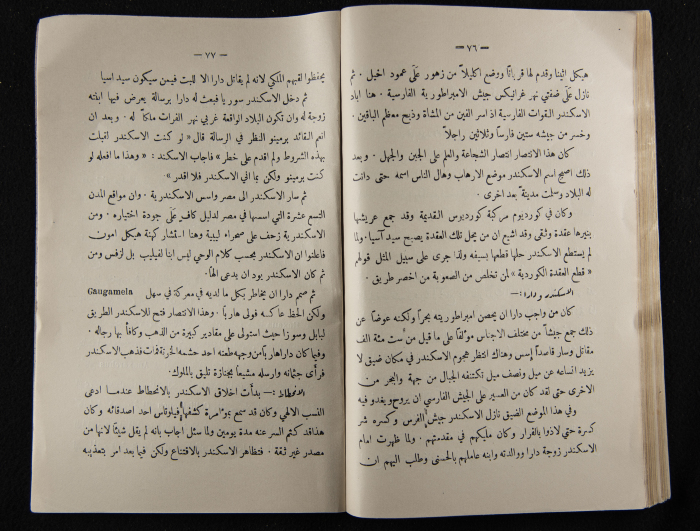 — ٧٦ —
هيكل اثينا وقدم لها قرباناً ووضع اكليلاً من زهور على عمود اخيل . ثم
نازل على ضفتي نهر غرانيكس جيش الامبراطورية الفارسية . هنا اباد
الاسكندر القوات الفارسية اذ اسر الفين من المشاة وذبح معظم الباقين .
وخسر من جيشه ستين فارساً وثلاثين راجلاً
كان هذا الانتصار انتصار الشجاعة والعلم على الجبن والجهل . وبعد
ذلك اصبح اسم الاسكندر موضع الارهاب وهال الناس اسمه حتى دانت
له البلاد وسلمت مدينة بعد اخرى .
وكان في كورديوم مركبة كورديوس القديمة وقد جمع عريشها
بنيرها عقدة وثقى وقد اشيع ان من يحل تلك العقدة يصبح سيد آسيا . ولما
لم يستطع الاسكندر حلها قطعها بسيفه ولذا جرى على سبيل المثل قولهم
« قطع العقدة الكوردية » لمن تخلص من الصعوبة من اخصر طريق .
الاسكندر ودارا :—
كان من واجب دارا ان يحصن امبراطوريته بحراً ولكنه عوضاً عن
ذلك جمع جيشاً من مختلف الاجناس مؤلفاً على ما قيل من ست مئة الف
مقاتل وسار قاصداً إسس وهناك انتظر هجوم الاسكندر في مكان ضيق لا
يزيد اتساعه عن ميل ونصف ميل تكتنفه الجبال من جهة والبحر من
الاخرى حتى لقد كان من العسير على الجيش الفارسي ان يروح ويغدو فيه
وفي هذا الموضع الضيق نازل الاسكندر جيش الفرس وكسره شر
كسرة حتى لاذوا بالفرار وكان مليكهم في مقدمتهم . ولما ظهرت امام
الاسكندر زوجة دارا ووالدته وابنه عاملهم بالحسنى وطلب اليهم ان
— ٧٧ —
يحفظوا لقبهم الملكي لانه لم يقاتل دارا الا للبت فيمن سيكون سيد اسيا
ثم دخل الاسكندر سوريا فبعث له دارا برسالة يعرض فيها ابنته
زوجة له وان تكون البلاد الواقعة غربي نهر الفرات ملكاً له . وبعد ان
انعم القائد برمينو النظر في الرسالة قال « لو كنت الاسكندر لقبلت
بهذه الشروط ولم اقدم على خطر » فاجاب الاسكندر : « وهذا ما افعله لو
كنت برمينو ولكن بما اني الاسكندر فلا اقدر » .
ثم سار الاسكندر الى مصر واسس الاسكندرية . وان مواقع المدن
التسع عشرة التي اسسها في مصر لدليل كاف على جودة اختياره . ومن
الاسكندرية زحف على صحراء ليبية وهنا استشار كهنة هيكل امون
فاعلنوا ان الاسكندر بحسب كلام الوحي ليس ابناً لفيليب بل لزفس ومن
ثم كان الاسكندر يود ان يدعى الهاً .
ثم صمم دارا ان يخاطر بكل ما لديه في معركة في سهل Gaugamela
ولكن الحظ عاكسه فولى هارباً . وهذا الانتصار فتح للاسكندر الطريق
لبابل وسوزا حيث استولى على مقادير كبيرة من الذهب وكافأ بها رجاله .
وفيما كان دارا هارباً من وجهه طعنه احد حشمه الخونة فمات فذهب الاسكندر
فرأى جثمانه وارسله مشيعاً بجنازة تليق بالملوك .
الانحطاط :— بدأت اخلاق الاسكندر بالانحطاط عندما ادعى
النسب الالهي وكان قد سمع بمؤامرة كشفها فيلوتاس احد اصدقائه وكان
هذا قد كتم السر عنه مدة يومين ولما سئل اجاب بانه لم يقل شيئاً لانها من
مصدر غير ثقة . فتظاهر الاسكندر بالاقتناع ولكن فيما بعد امر بتعذيبه